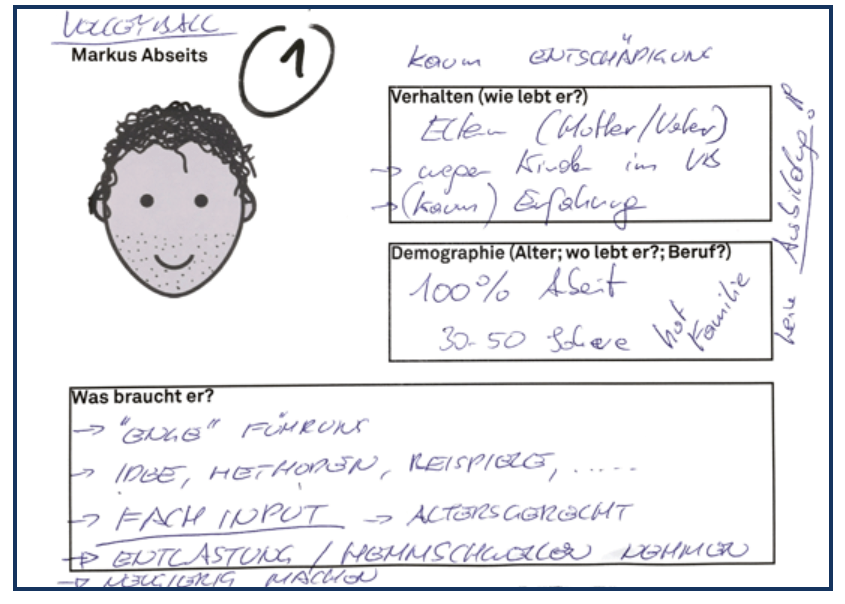 VOLLEYBALL
Markus Abseits
1
kaum ENTSCHÄDIGUNG
Verhalten (wie lebt er?)
Eltern (Mutter/Vater)
→ wegen Kinder im VB
→ (kaum) Erfahrung
keine Ausbildung
Demographie (Alter; wo lebt er?; Beruf?)
100% Arbeit
30-50 Jahre
hat Familie
Was braucht er?
→ "ENGE" FÜHRUNG
→ IDEE, METHODEN, BEISPIELE, .....
→ FACH INPUT → ALTERSGERECHT
→ ENTLASTUNG / HEMMSCHWELLEN NEHMEN
→ NEUGIERIG MACHEN